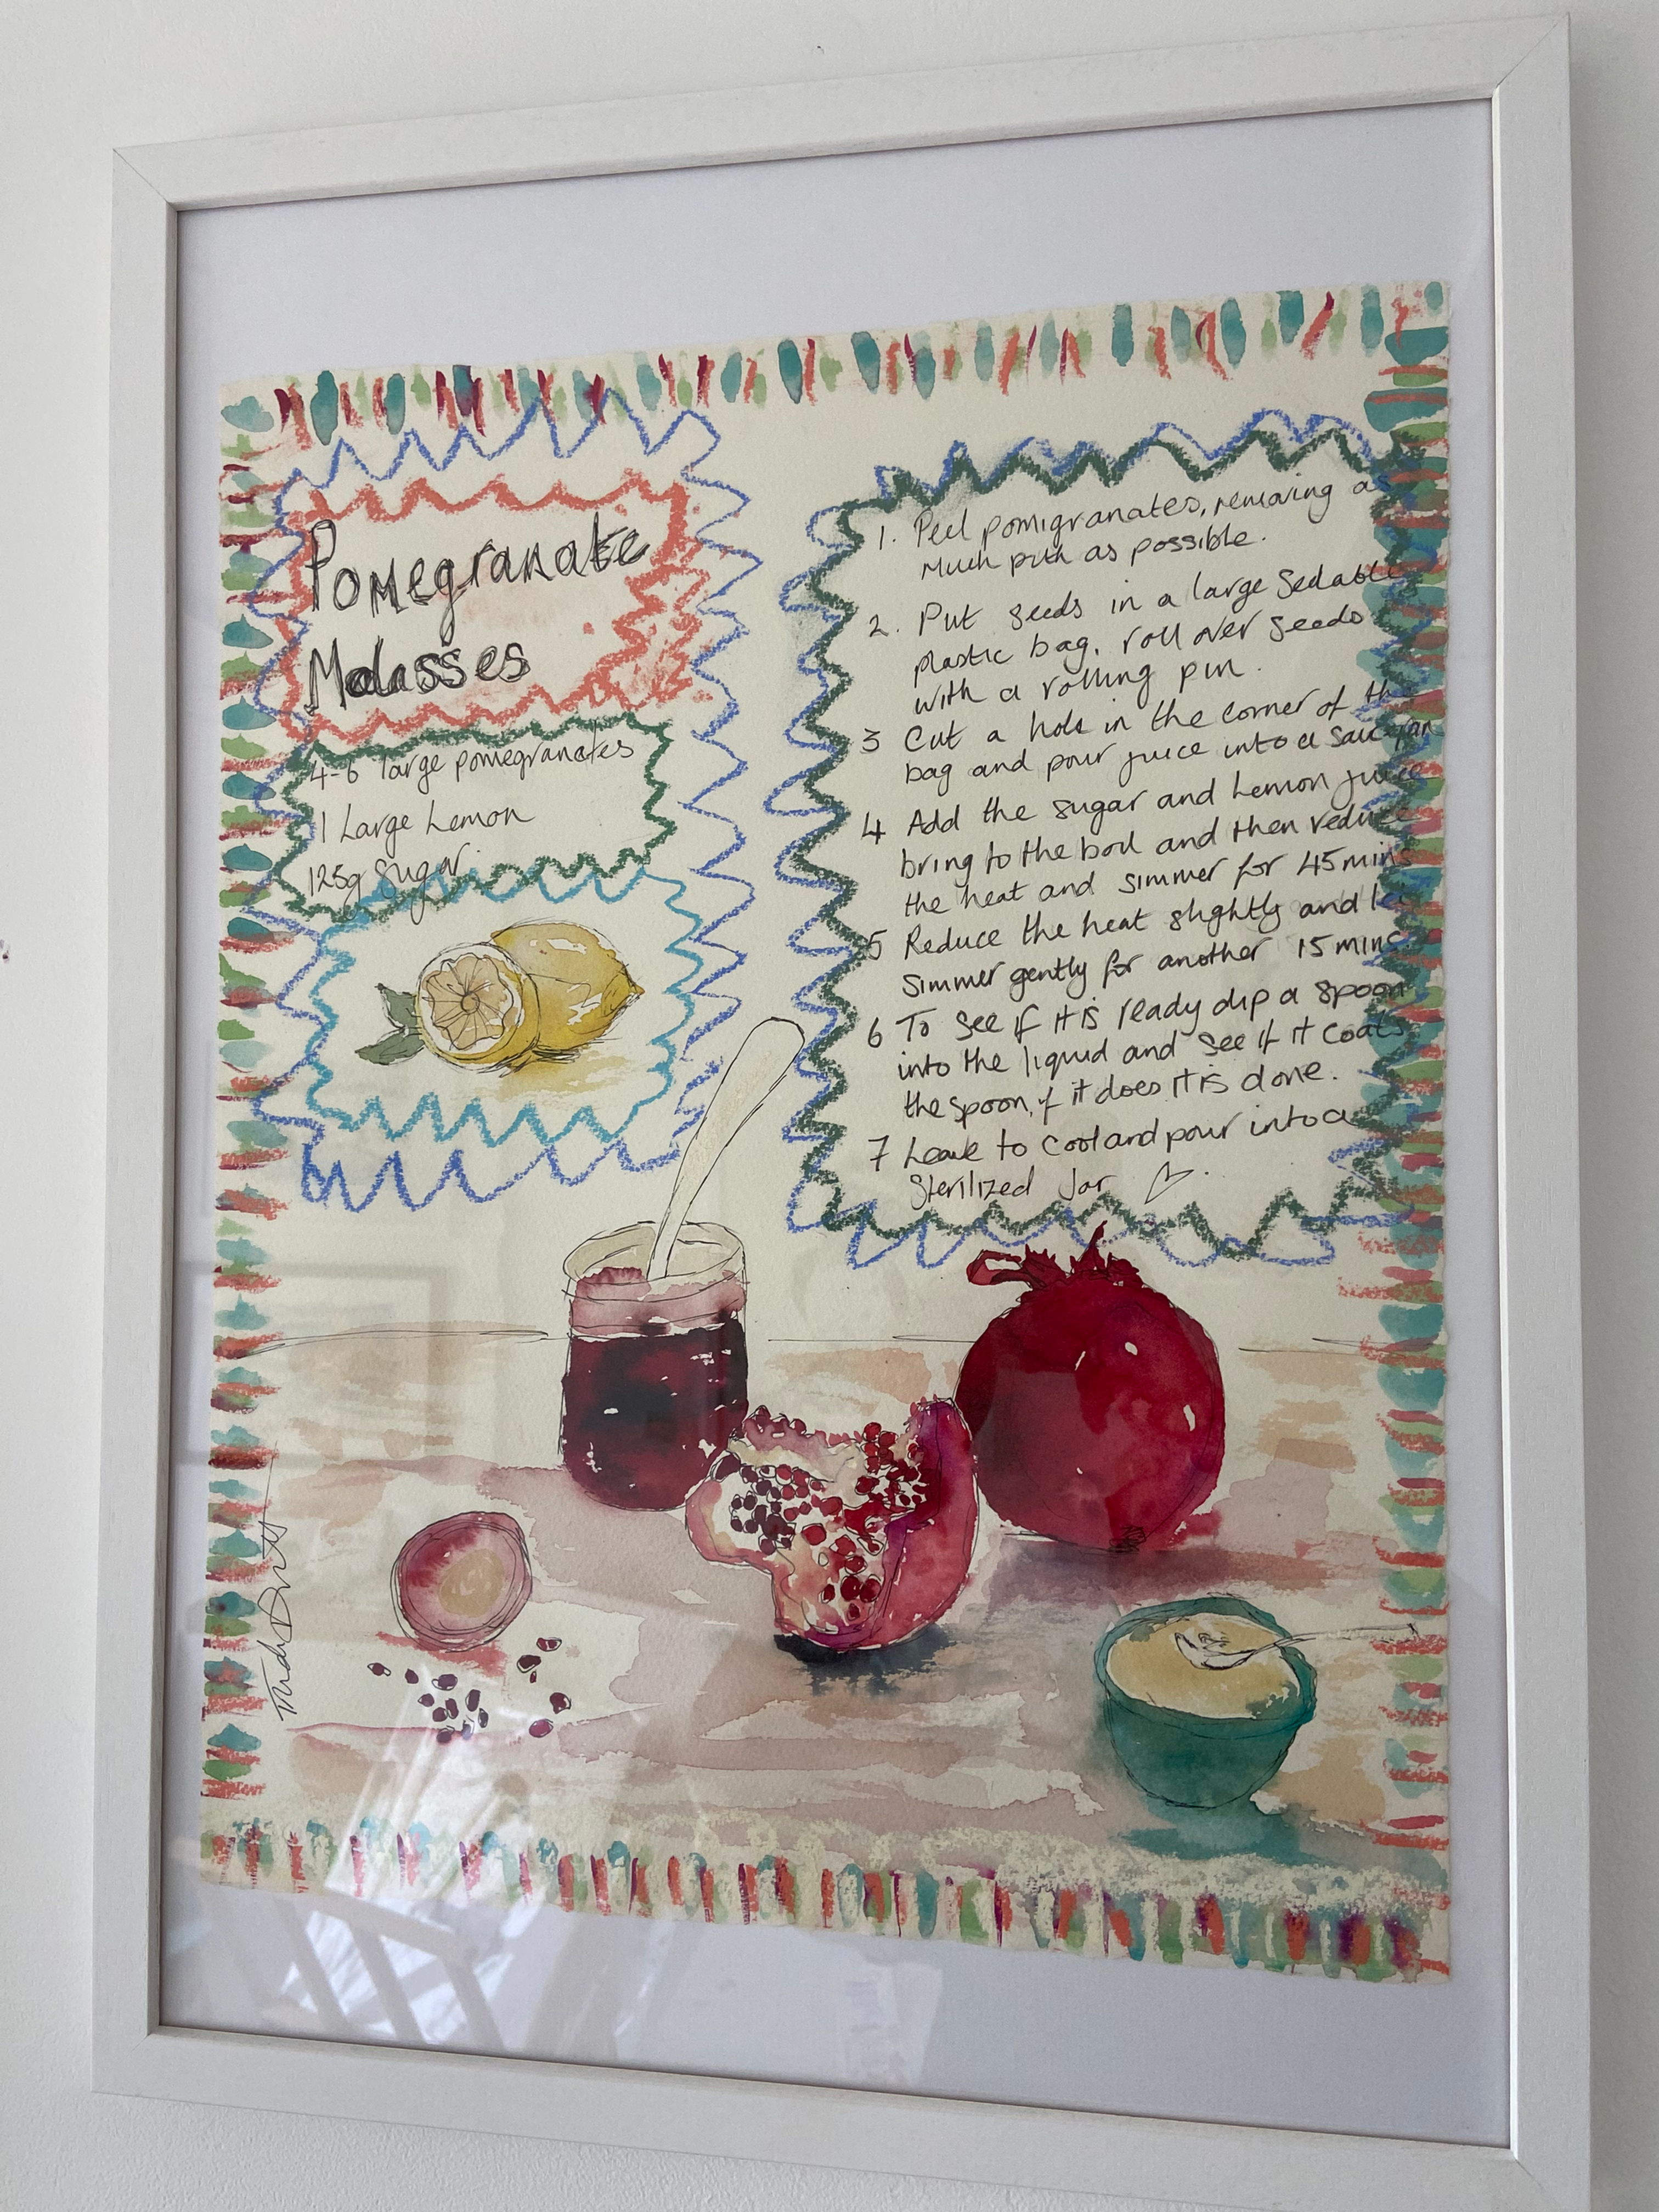 Pomegranate
Molasses
4-6 large pomegranates
1 Large Lemon
125g sugar.
1. Peel pomigranates, removing as
much pith as possible.
2. Put seeds in a large Sealable
plastic bag, roll over seeds
with a rolling pin.
3 Cut a hole in the corner of the
bag and pour juice into a saucepan
4 Add the sugar and Lemon juice
bring to the boil and then reduce
the heat and simmer for 45 mins
5 Reduce the heat slightly and let
simmer gently for another 15 mins.
6 To see if it is ready dip a spoon
into the liquid and see if it coats
the spoon, if it does it is done.
7 Leave to cool and pour into a
Sterilized Jar